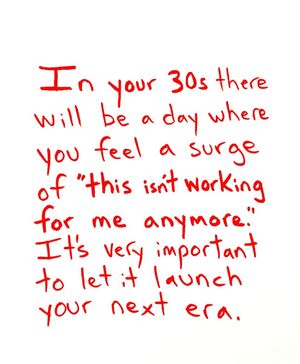 In your 30s there
will be a day where
you feel a surge
of "this isn't working
for me anymore."
It's very important
to let it launch
your next era.